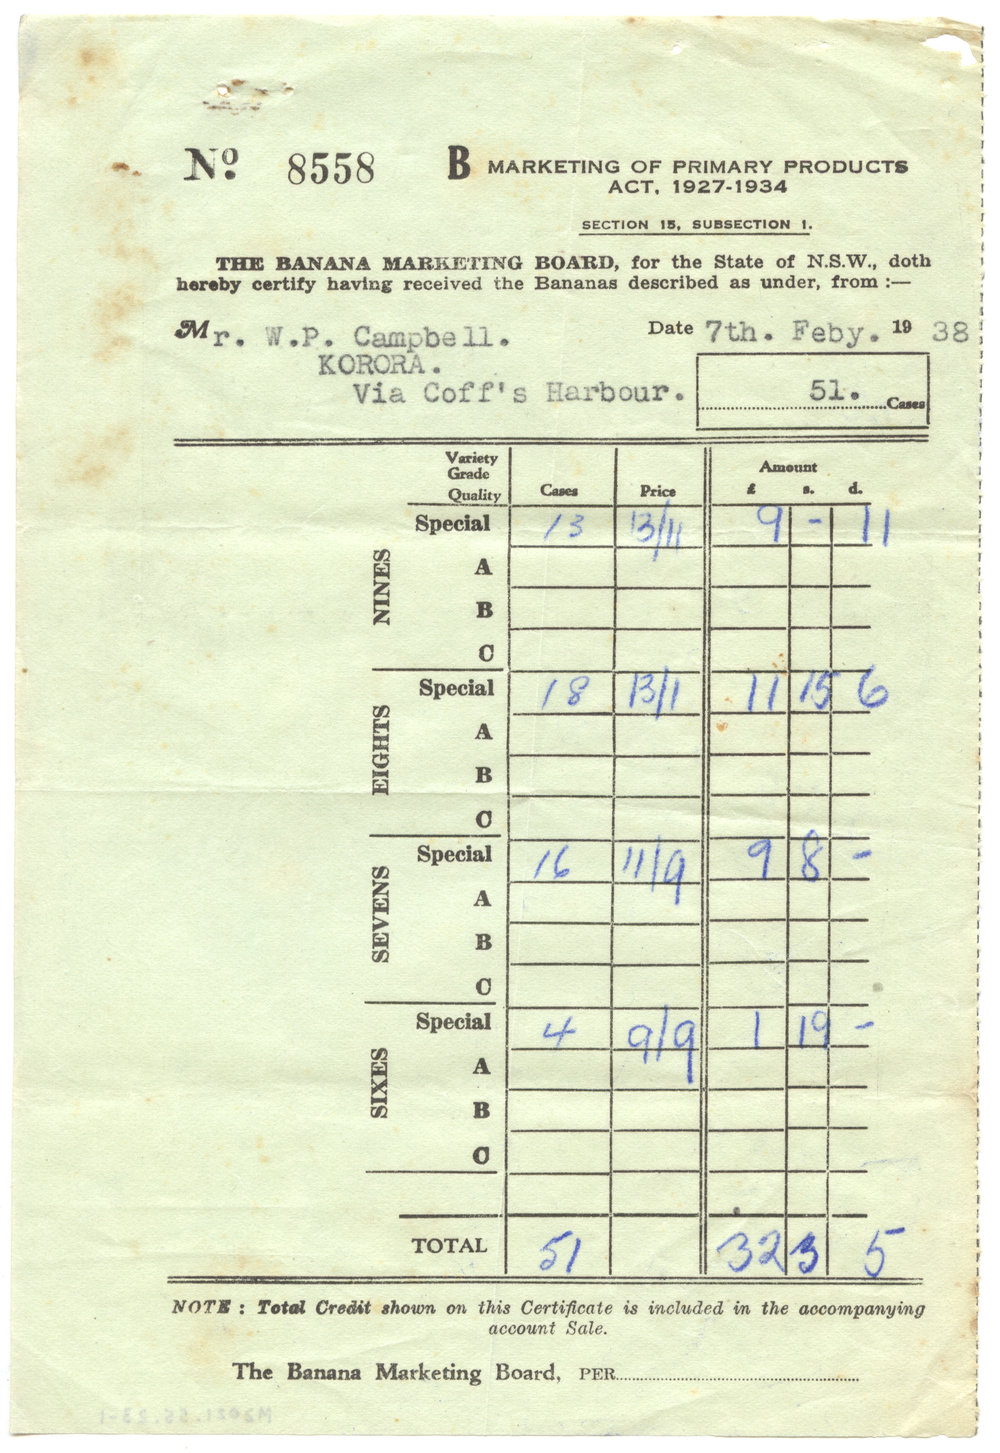 Nº 8558 B MARKETING OF PRIMARY PRODUCTS
ACT, 1927-1934
SECTION 15, SUBSECTION 1.
THE BANANA MARKETING BOARD, for the State of N.S.W., doth
hereby certify having received the Bananas described as under, from :—
Mr. W.P. Campbell. Date 7th. Feby. 1938
KORORA.
Via Coff's Harbour. 51. Cases
Variety
Grade
Quality Cases Price Amount £ s. d.
NINES
Special 13 13/11 9 - 11
A
B
C
EIGHTS
Special 18 13/1 11 15 6
A
B
C
SEVENS
Special 16 11/9 9 8 -
A
B
C
SIXES
Special 4 9/9 1 19 -
A
B
C
TOTAL 51 32 3 5
NOTE : Total Credit shown on this Certificate is included in the accompanying
account Sale.
The Banana Marketing Board, PER